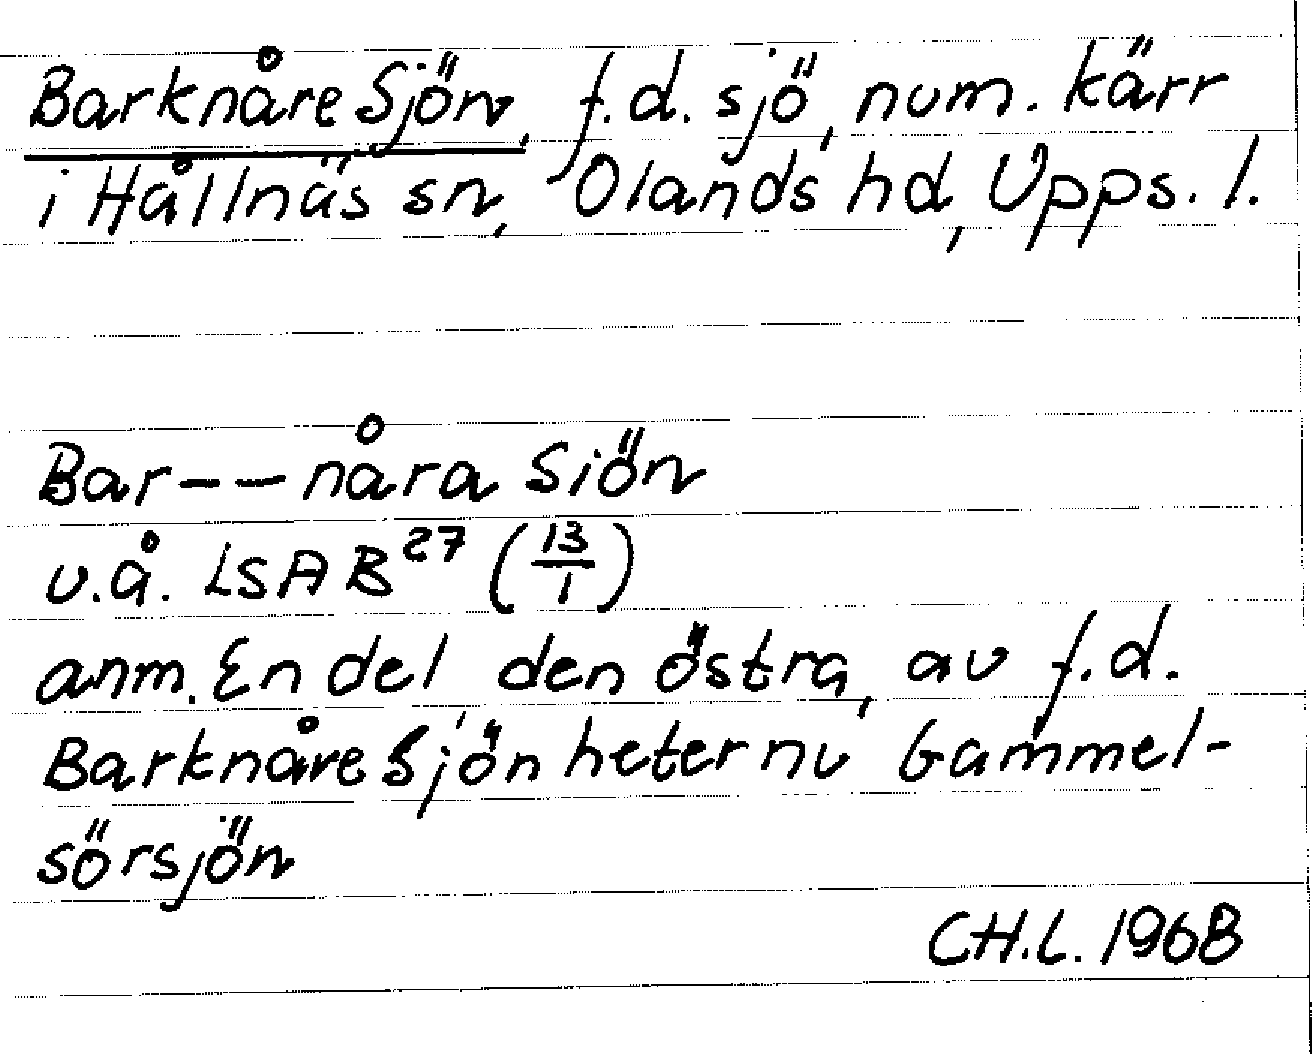 Barknåre Sjön, f.d. sjö, num. kärr
i Hållnäs sn, Olands hd, Upps. l.
Bar--nåra Siön
u.å. LSA B27 (13/1)
anm. En del den östra, av f.d.
Barknåre Sjön heter nu Gammel-
sörsjön
CH.L. 1968